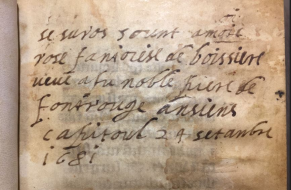 se suros sount a moi
rose fansoise de boissiere
veuve a tu noble piere de
fontrouge ansiens
capitoul 24 setanbre
1681